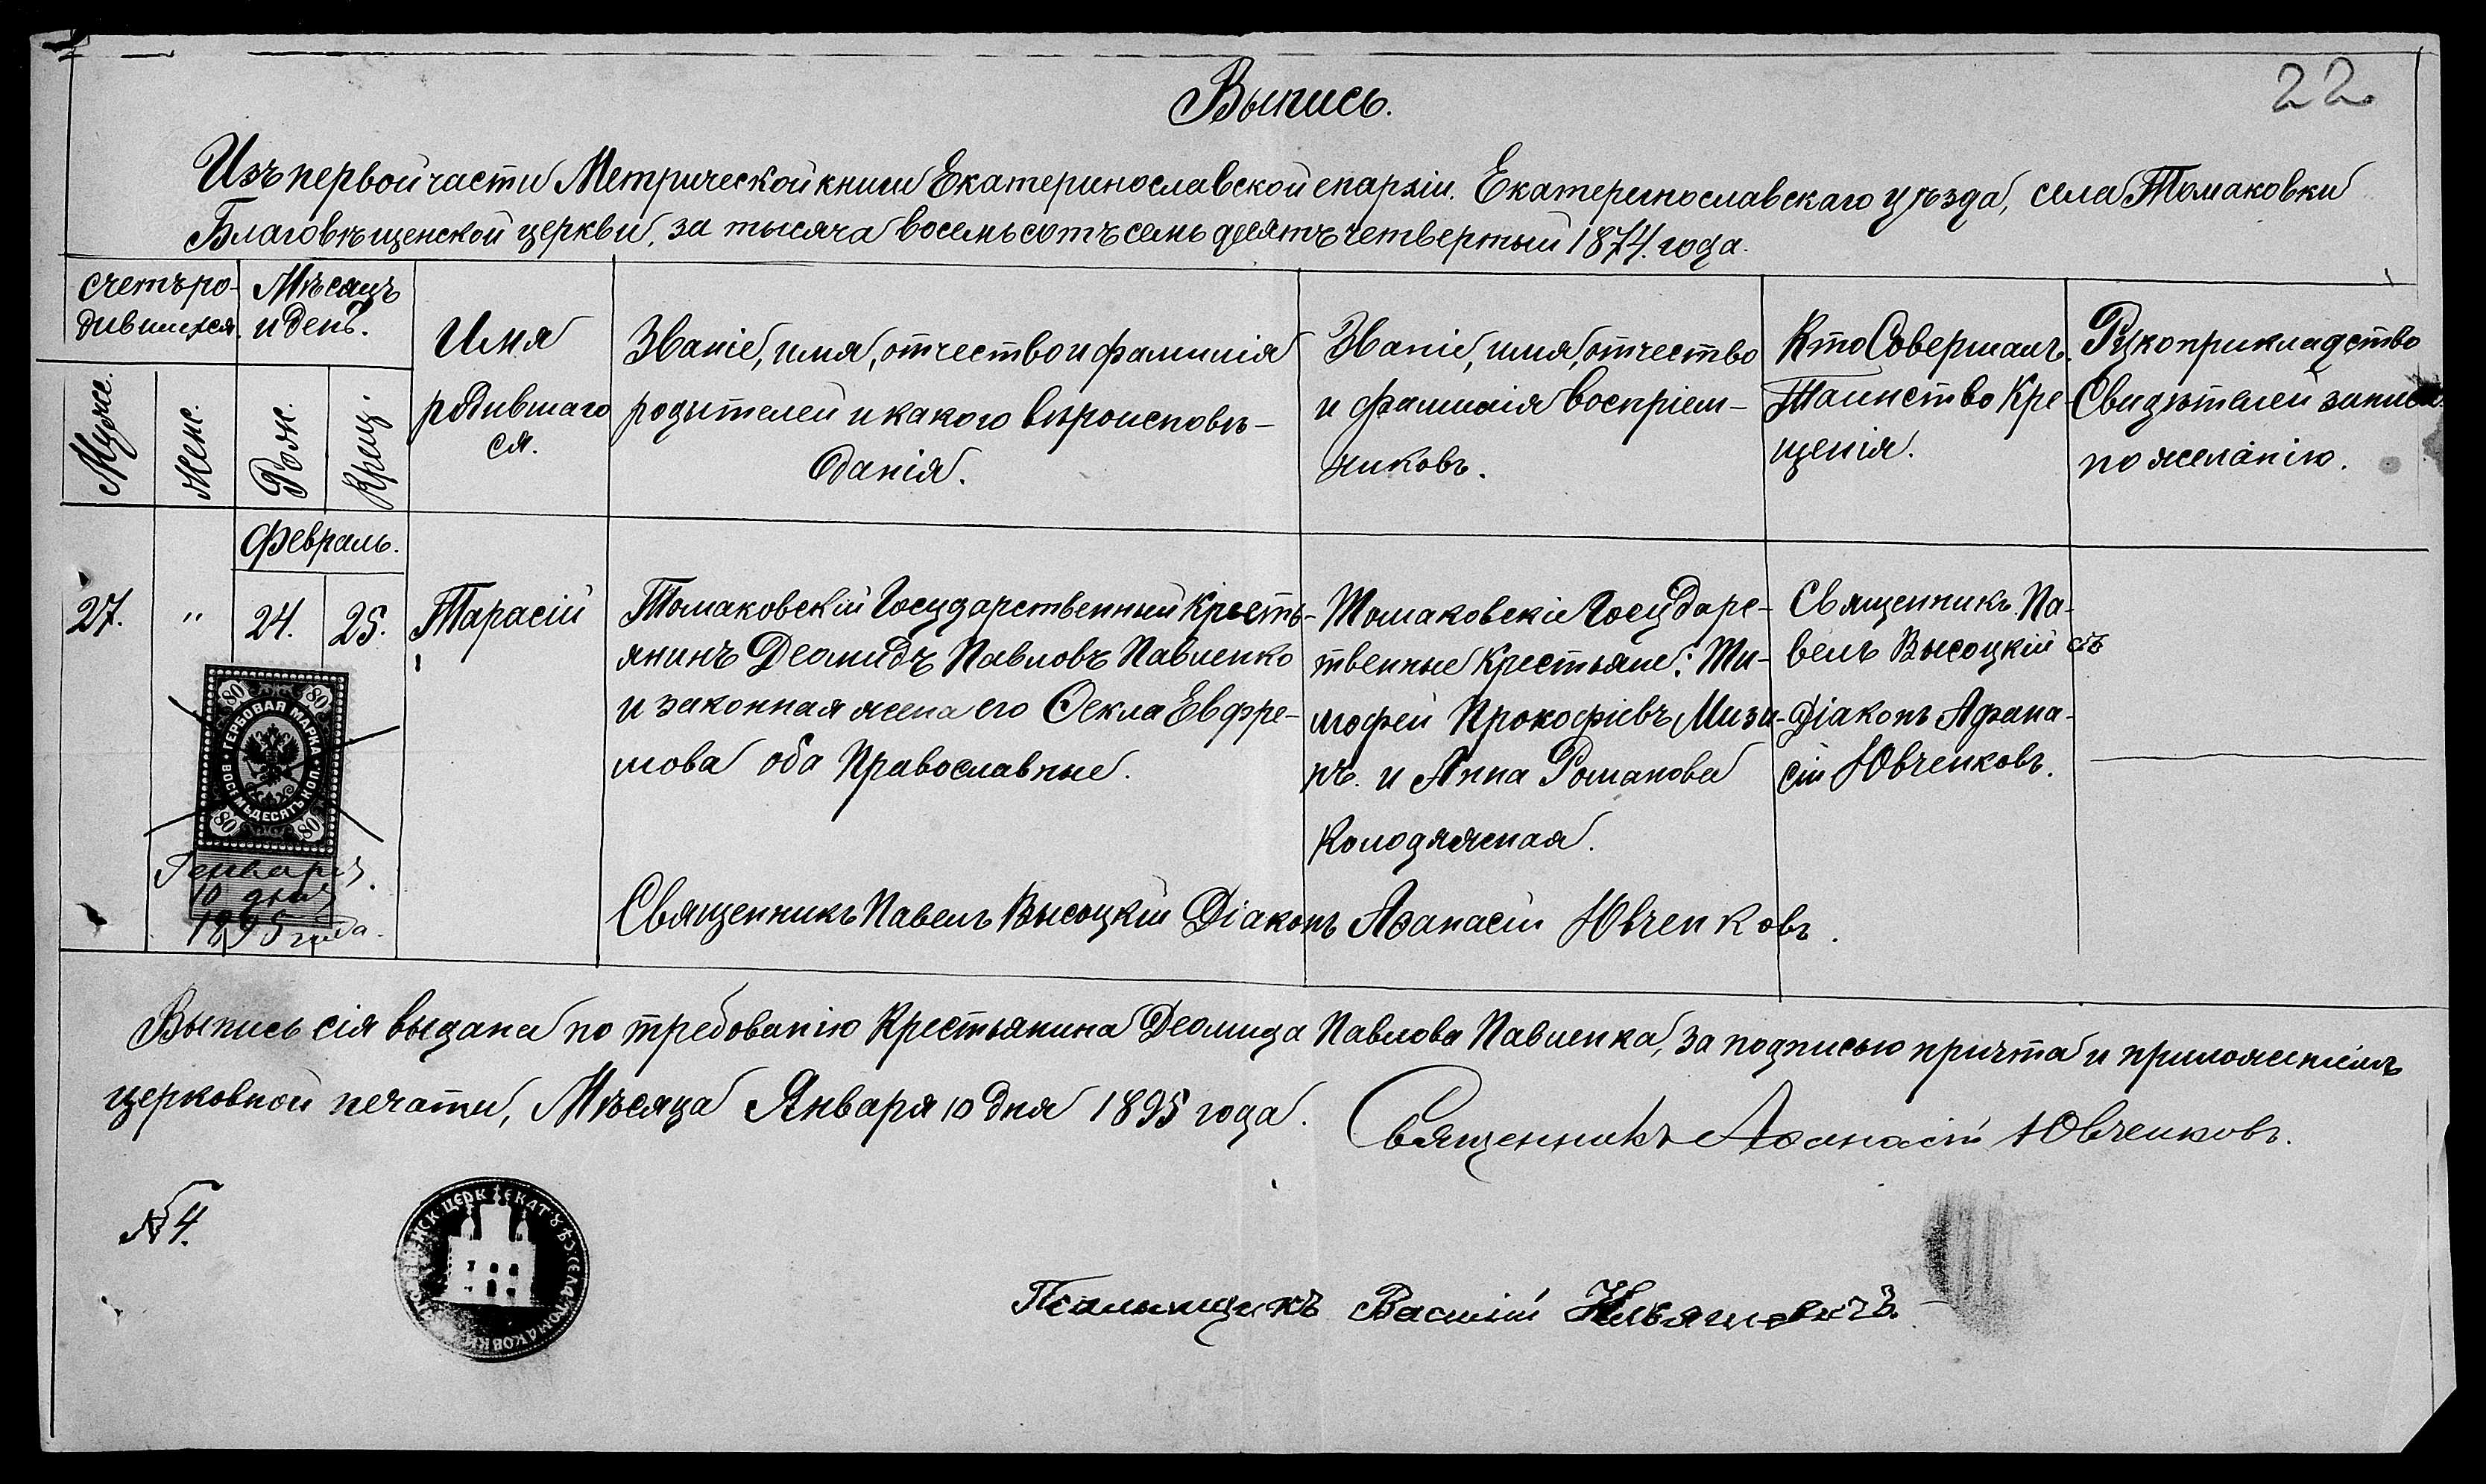 22
Выпись.
Изъ первой части Метрической книги Екатеринославской епархіи. Екатеринославскаго уѣзда, села Томаковки
Благовѣщенской церкви, за тысяча восемьсотъ семьдесятъ четвертый 1874. года.
Счетъ ро-
дившихся.
Мѣсяцъ
и день.
Муж.
Женс.
Рожс.
Крещ.
Имя
родившаго
ся.
Званіе, имя, отчество и фамилія
родителей и какого вѣроисповѣ-
данія.
Званіе, имя, отчество
и фамилія воспріем-
никовъ.
Кто Совершалъ
Таинство Кре-
щенія.
Рукоприкладство
Свидѣтелей записи
по желанію.
Февраль.
27.
"
24.
25.
Тарасій
Томаковскій Государственный Кресть-
янинъ Деомидъ Павловъ Павленко
и законная жена его Ѳекла Евфре-
мова оба Православные.
Томаковскіе Государс-
твенные Крестьяне: Ти-
мофей Прокофіевъ Мизи-
нъ. и Анна Романова
Колодяжная.
Священникъ Па-
велъ Высоцкій съ
Діаконъ Афана-
сій Ювченковъ.
80 80
ГЕРБОВАЯ МАРКА
ВОСЕМЬДЕСЯТЪ КОП.
80 80
Генваря
10 дня
1895 года.
Священникъ Павелъ Высоцкій Діаконъ Аѳанасій Ювченковъ.
Выпись сія выдана по требованію Крестьянина Деомида Павлова Павленка, за подписью причта и приложеніемъ
церковной печати, Мѣсяца Января 10 дня 1895 года.
Священникъ Аѳанасій Ювченковъ.
№ 4.
ЦЕРК ЕКАТ УѢ СЕЛА ТОМАКОВКИ
Псаломщикъ Василій